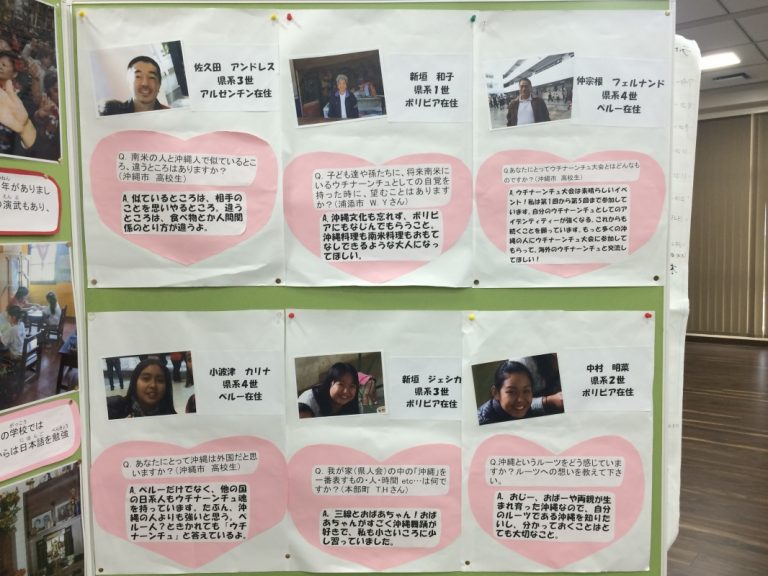 佐久田 アンドレス
県系3世
アルゼンチン在住
Q. 南米の人と沖縄人で似ているとこ
ろ、違うところはありますか？
(沖縄市 高校生)
A. 似ているところは、相手の
ことを思いやるところ。違う
ところは、食べ物とか人間関
係のとり方が違うよ。
新垣 和子
県系1世
ボリビア在住
Q. 子ども達や孫たちに、将来南米に
いるウチナーンチュとしての自覚を
持った時に、望むことはあります
か？(浦添市 W. Yさん)
A. 沖縄文化も忘れず、ボリビ
アにもなじんでもらうこと。
沖縄料理も南米料理もおもて
なしできるような大人になって
ほしい。
仲宗根 フェルナンド
県系4世
ペルー在住
Q.あなたにとってウチナーンチュ大会とはどんなも
のですか？(沖縄市 高校生)
A. ウチナーンチュ大会は素晴らしいイベ
ント！私は第1回から第5回まで参加して
います。自分のウチナーンチュとしてのア
イデンティティーが強くなる。これからも
続くことを願っています。もっと多くの沖
縄の人にウチナーンチュ大会に参加して
もらって、海外のウチナーンチュと交流し
てほしい！
小波津 カリナ
県系4世
ペルー在住
Q. あなたにとって沖縄は外国だと思
いますか？(沖縄市 高校生)
A. ペルーだけでなく、他の国
の日系人もウチナーンチュ魂
を持っています。たぶん、沖
縄の人よりも強いと思う。ペ
ルー人？ときかれても「ウチ
ナーンチュ」と答えているよ。
新垣 ジェシカ
県系3世
ボリビア在住
Q. 我が家(県人会)の中の「沖縄」を
一番表すもの・人・時間 etc…は何で
すか？(本部町 T.Hさん)
A. 三線とおばあちゃん！おば
あちゃんがすごく沖縄舞踊が
好きで、私も小さいころに少
し習っていました。
中村 明菜
県系2世
ボリビア在住
Q.沖縄というルーツをどう感じてい
ますか？ルーツへの想いを教えて下さ
い。
A. おじー、おばーや両親が生
まれ育った沖縄なので、自分
のルーツである沖縄を知りた
いし、分かっておくことはと
ても大切なこと。
年がありまし
の演武もあり、
の学校では
からは日本語を勉強